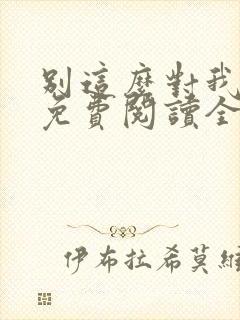 別這麼對我
免費閱讀全
伊布拉希莫維